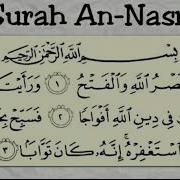 Surah An-Nasr
بِسْمِ اللَّهِ الرَّحْمَٰنِ الرَّحِيمِ
نَصْرُ اللَّهِ وَالْفَتْحُ ١ وَرَأَيْتَ
فِي دِينِ اللَّهِ أَفْوَاجًا ٢ فَسَبِّحْ
اسْتَغْفِرْهُ ۚ إِنَّهُ كَانَ تَوَّابًا ٣